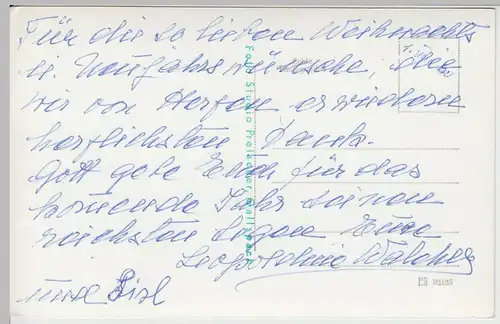 Für die so lieben Weihnachts
u. Neujahrswünsche, die
wir von Herzen erwidern
herzlichsten Dank.
Gott gebe Euch für das
komende Jahr seinen
reichsten Segen Eure
Leopoldine Walcher
und Lisl
Foto Studio